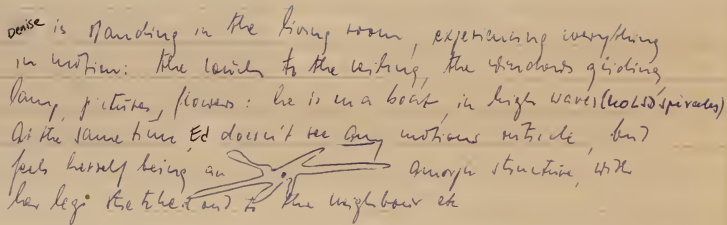 Denise is standing in the living room, experiencing everything
in motion: the couch to the ceiling, the windows gliding,
lamp, pictures, flowers: he is in a boat, in high waves (no LSD spiracles)
At the same time, Ed doesn't see any motions outside, but
feels herself being an amorph structure, with
her legs stretched out to the neighbour etc